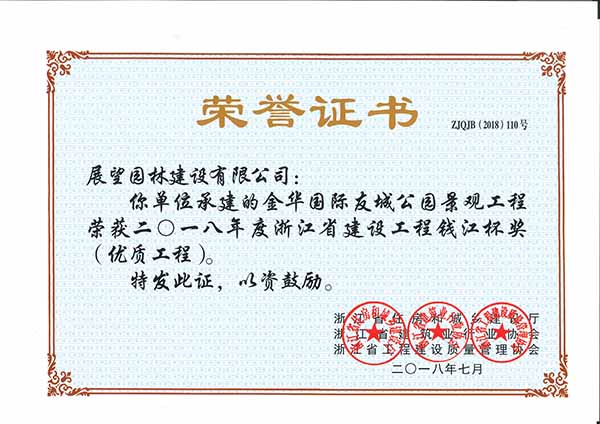 荣誉证书
ZJQJB（2018）110号
展望园林建设有限公司：
你单位承建的金华国际友城公园景观工程
荣获二〇一八年度浙江省建设工程钱江杯奖
（优质工程）。
特发此证，以资鼓励。
浙江省住房和城乡建设厅
浙江省建筑业行业协会
浙江省工程建设质量管理协会
二〇一八年七月